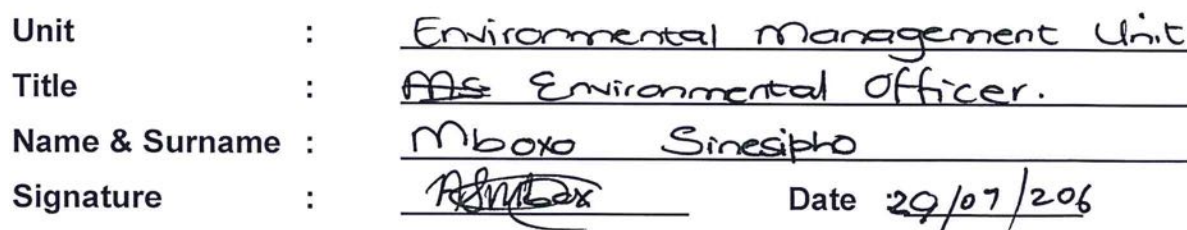 Unit : Environmental Management Unit
Title : Ms Environmental Officer.
Name & Surname : Mboxo Sinesipho
Signature : Date 29/07/206